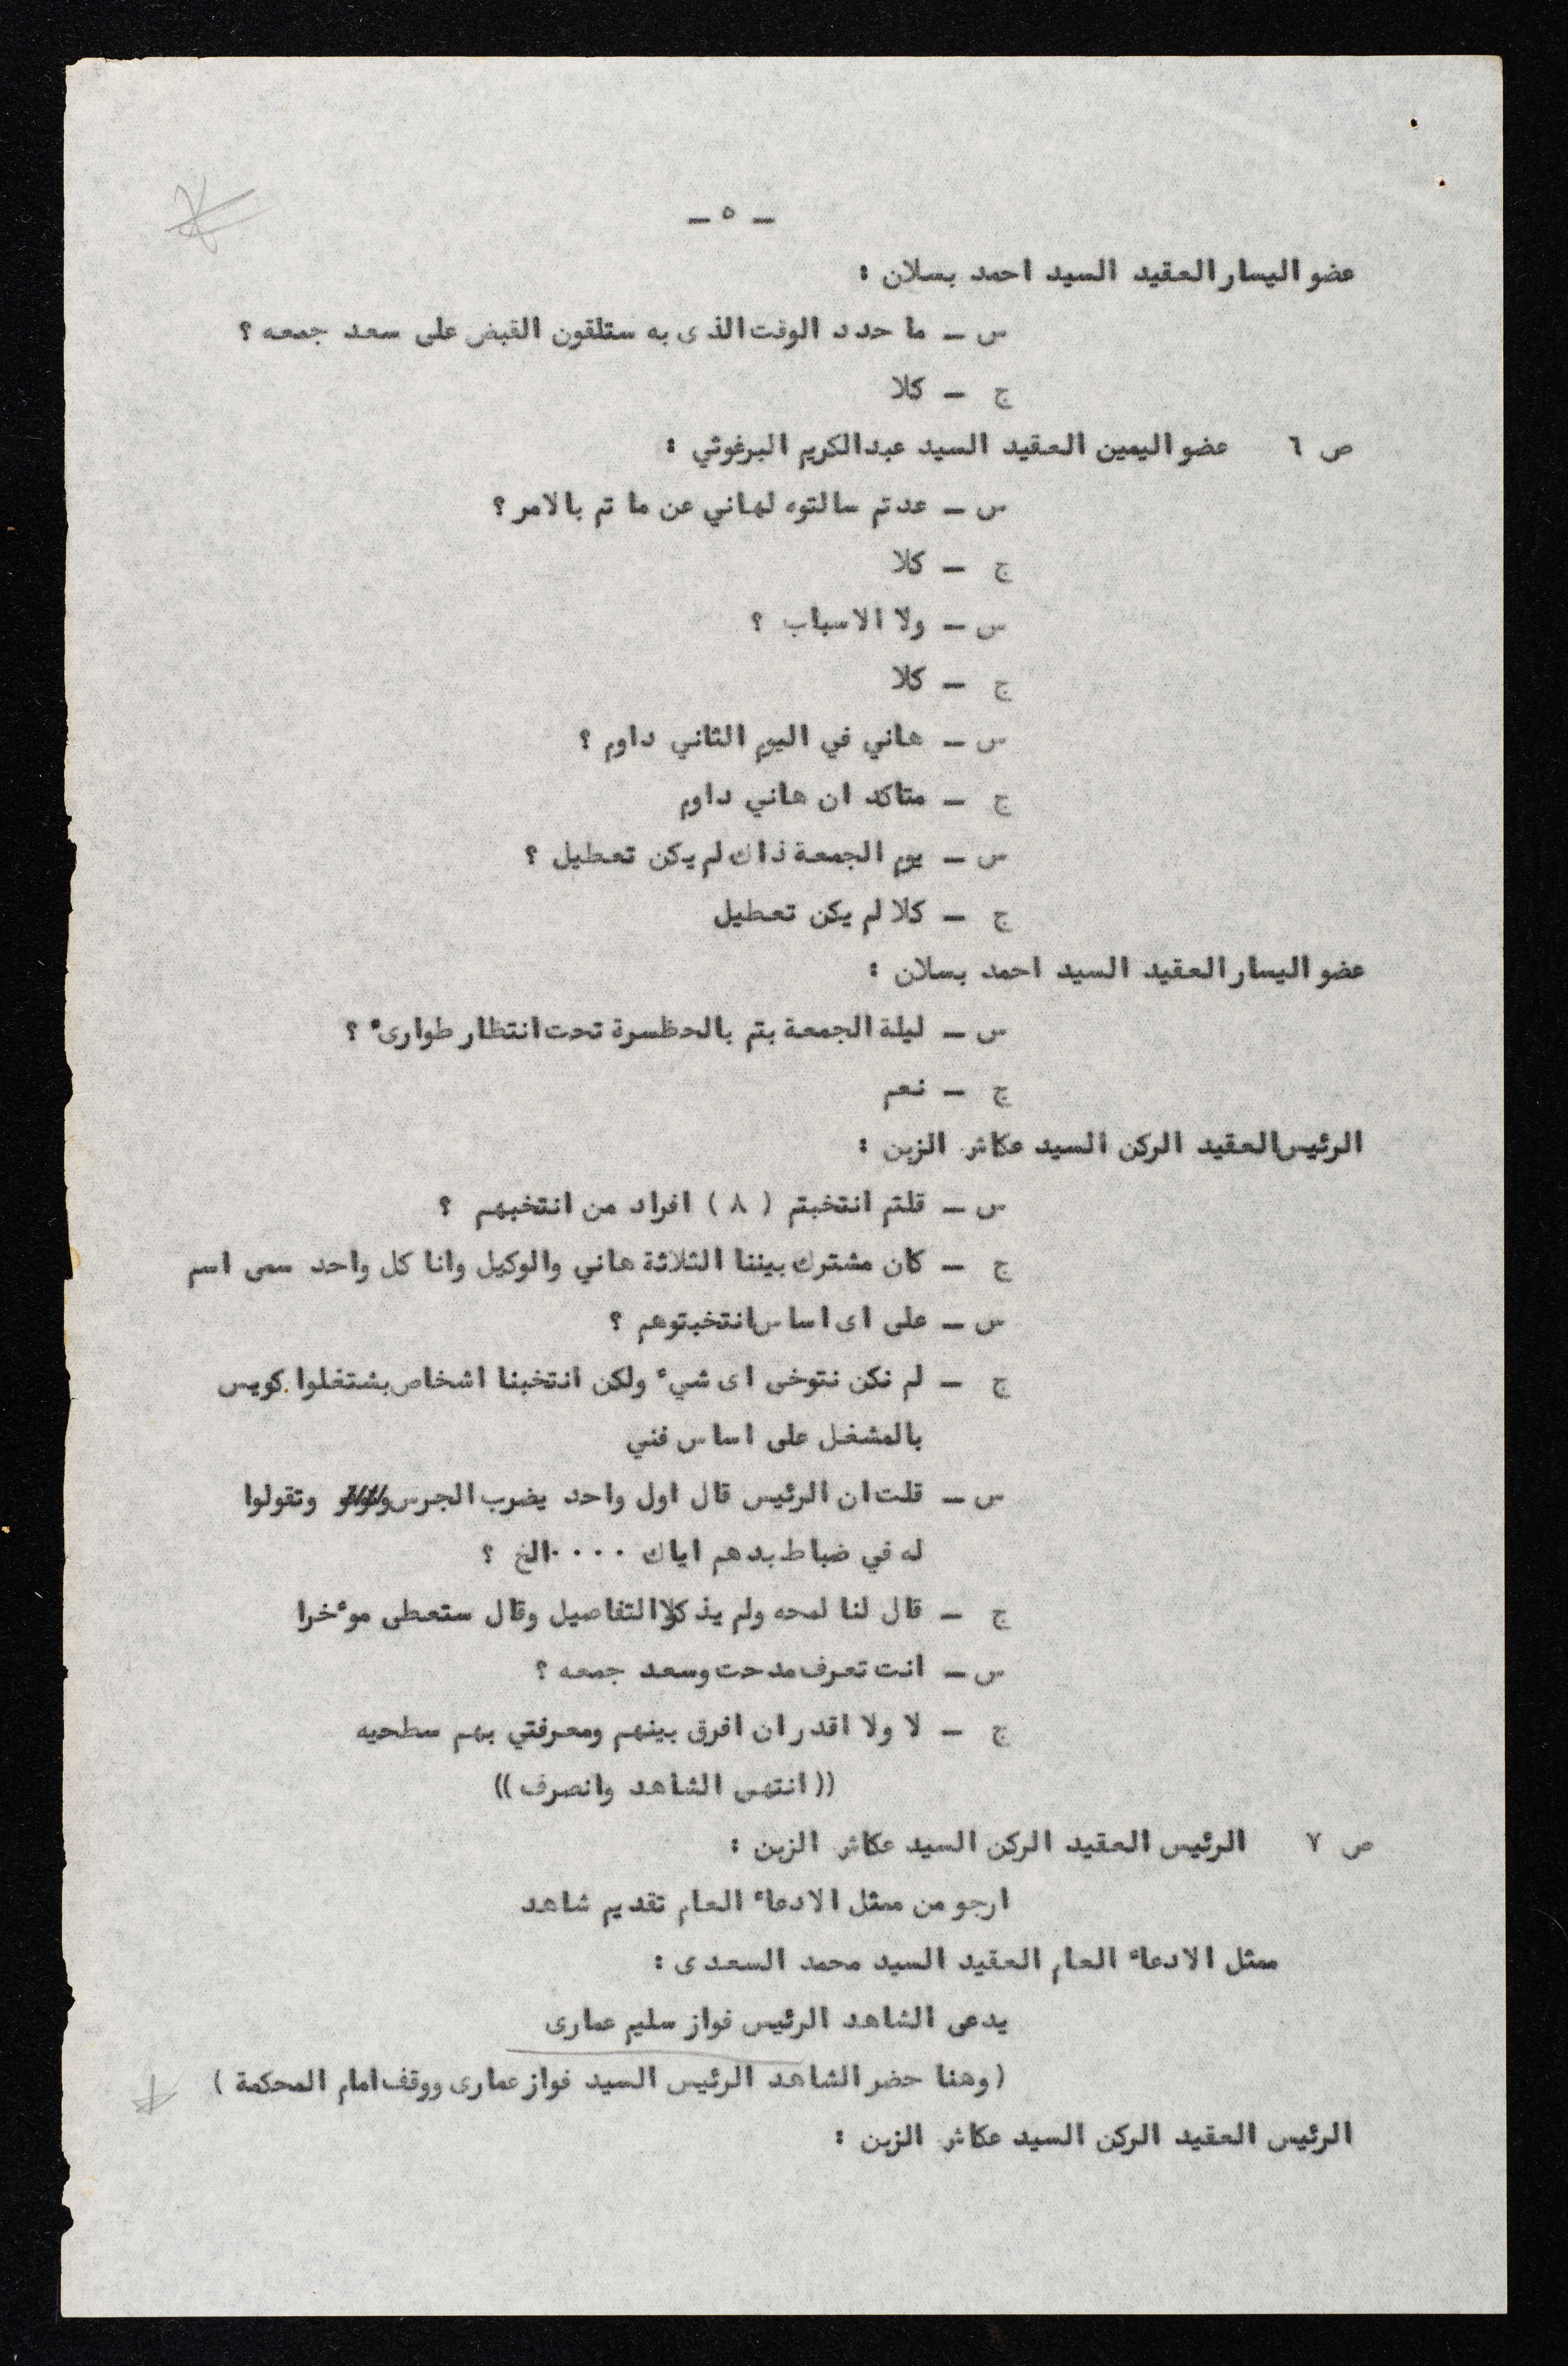 — ٥ —
عضو اليسار العقيد السيد احمد بسلان :
س — ما حدد الوقت الذى به ستلقون القبض على سعد جمعه ؟
ج — كلا
ص ٦ عضو اليمين العقيد السيد عبدالكريم البرغوثي :
س — عدتم سالتوه لهاني عن ما تم بالامر ؟
ج — كلا
س — ولا الاسباب ؟
ج — كلا
س — هاني في اليوم الثاني داوم ؟
ج — متاكد ان هاني داوم
س — يوم الجمعة ذاك لم يكن تعطيل ؟
ج — كلا لم يكن تعطيل
عضو اليسار العقيد السيد احمد بسلان :
س — ليلة الجمعة بتم بالحظسرة تحت انتظار طوارىء ؟
ج — نعم
الرئيس العقيد الركن السيد عكاش الزبن :
س — قلتم انتخبتم ( ٨ ) افراد من انتخبهم ؟
ج — كان مشترك بيننا الثلاثة هاني والوكيل وانا كل واحد سمى اسم
س — على اى اساس انتخبتوهم ؟
ج — لم نكن نتوخى اى شيء ولكن انتخبنا اشخاص بشتغلوا كويس
بالمشغل على اساس فني
س — قلت ان الرئيس قال اول واحد يضرب الجرس وتقولوا
له في ضباط بدهم اياك ٠٠٠٠ الخ ؟
ج — قال لنا لمحه ولم يذكر التفاصيل وقال ستعطى موءخرا
س — انت تعرف مدحت وسعد جمعه ؟
ج — لا ولا اقدر ان افرق بينهم ومعرفتي بهم سطحيه
(( انتهى الشاهد وانصرف ))
ص ٧ الرئيس العقيد الركن السيد عكاش الزبن :
ارجو من ممثل الادعاء العام تقديم شاهد
ممثل الادعاء العام العقيد السيد محمد السعدى :
يدعى الشاهد الرئيس فواز سليم عمارى
( وهنا حضر الشاهد الرئيس السيد فواز عمارى ووقف امام المحكمة )
الرئيس العقيد الركن السيد عكاش الزبن :